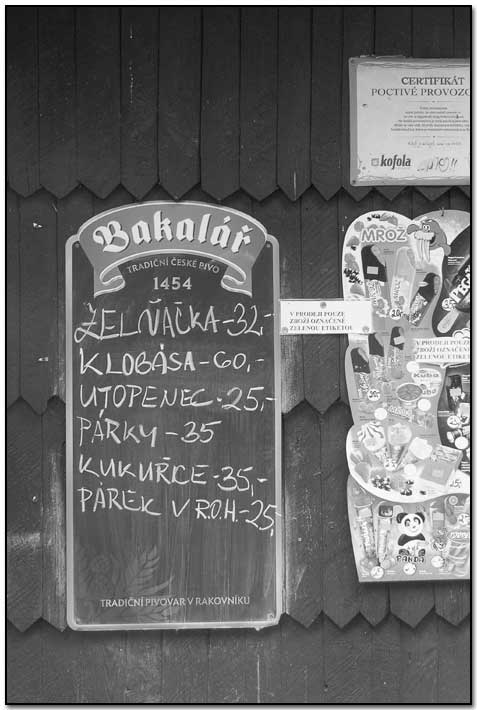 CERTIFIKÁT
POCTIVÉ PROVOZO
kofola
Bakalář
TRADIČNÍ ČESKÉ PIVO
1454
ŽELŇAČKA-32,-
KLOBÁSA-60,-
UTOPENEC-25,-
PÁRKY-35
KUKUŘICE-35,-
PÁREK V R.O.H.-25,
TRADIČNÍ PIVOVAR V RAKOVNÍKU
V PRODEJI POUZE
ZBOŽÍ OZNAČENÉ
ZELENOU ETIKETOU
MROŽ
V PRODEJI POUZE
ZBOŽÍ OZNAČENÉ
ZELENOU ETIKET
Kuba
Kuba
PANDA